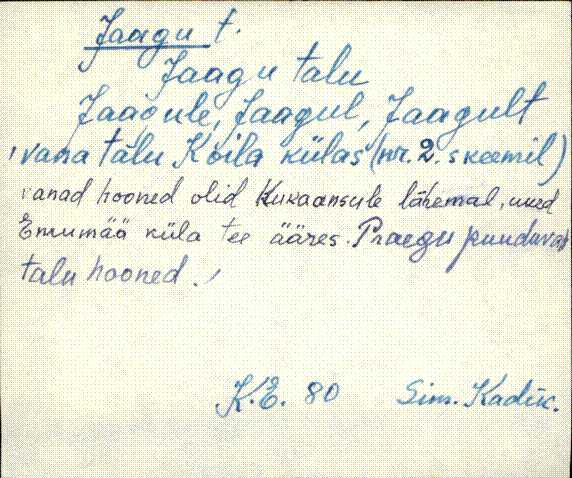 Jaagu t.
Jaagu talu
Jaagule, Jaagul, Jaagult
, vana talu Koila külas (nr. 2. skeemil)
vanad hooned olid Kukaansule lähemal, uued
Emumää küla tee ääres. Praegu puuduvad
talu hooned.,
K.E. 80 Sim. Kadik.